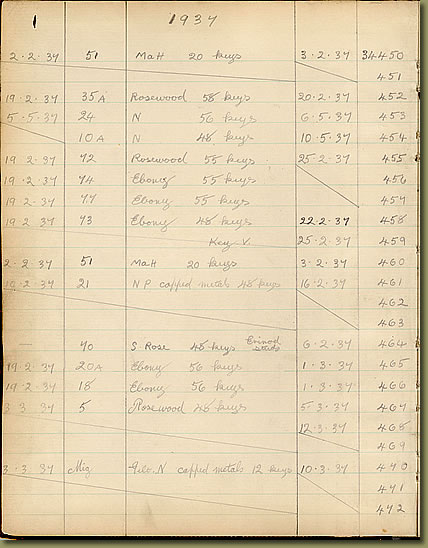 1 1937
2.2.37 51 Mah 20 keys 3.2.37 34450
451
19.2.37 35A Rosewood 58 keys 20.2.37 452
5.5.37 24 N 56 keys 6.5.37 453
10A N 48 keys 10.5.37 454
19.2.37 72 Rosewood 55 keys 25.2.37 455
19.2.37 74 Ebony 55 keys 456
19.2.37 77 Ebony 55 keys 457
19.2.37 73 Ebony 48 keys 22.2.37 458
Key V. 25.2.37 459
2.2.37 51 Mah 20 keys 3.2.37 460
2.37 21 N P capped metals 48 keys 16.2.37 461
462
463
70 S. Rose 48 keys 6.2.37 464
19.2.37 20A Ebony 56 keys 1.3.37 465
19.2.37 18 Ebony 56 keys 1.3.37 466
3.3.37 5 Rosewood 48 keys 5.3.37 467
12.3.37 468
469
3.3.37 N capped metals 12 keys 10.3.37 470
471
472